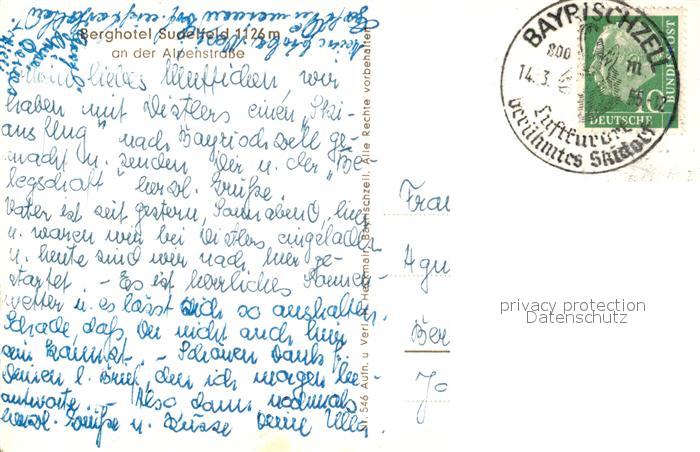 Berghotel Sudelfeld 1126 m
an der Alpenstraße
mein liebes Muttichen, wir
haben mit Distlers einen „Ski-
ausflug" nach Bayrischzell ge-
macht u. senden Dir u. der „Be-
legschaft" herzl. Grüße.
Vater ist seit gestern, Sonnabend, hier
u. waren wir bei Distlers eingeladen
u. heute sind wir nach hier ge-
startet. - Es ist herrliches Sonnen-
wetter u. es lässt sich so aushalten.
Schade, daß Du nicht auch hier
sein kannst. - Schönen Dank f.
Deinen l. Brief, den ich morgen be-
antworte. - Also dann nochmals
herzl. Grüße u. Küsse Deine Ulla
Nr. 546 Aufn. u. Verlag Bayrischzell. Alle Rechte vorbehalten
BAYRISCHZELL
800 m
14.3. 12
Luftkurort
berühmtes Skidorf
10
DEUTSCHE
BUNDESPOST
Frau
Agn
Ber
privacy protection
Datenschutz